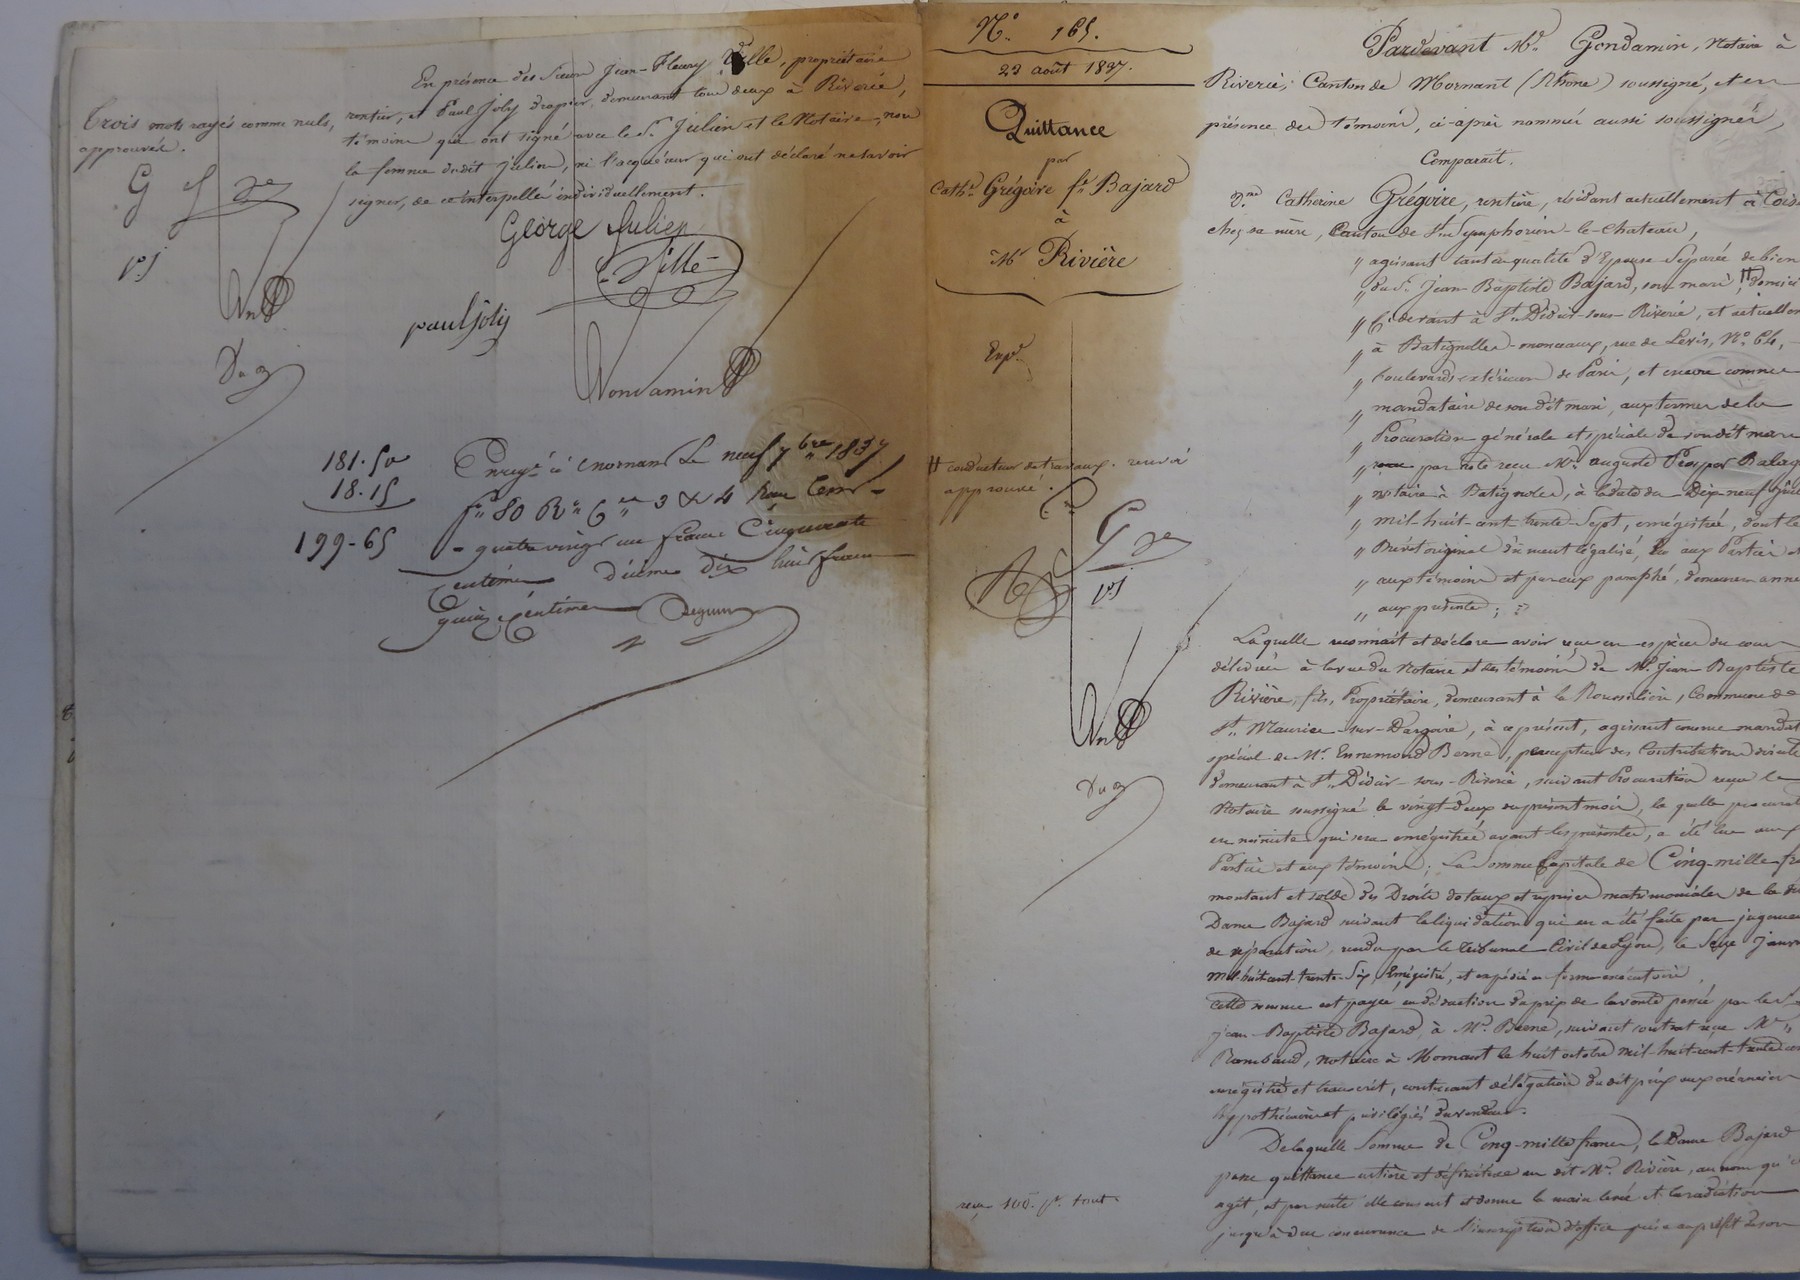 En présence des Sieurs Jean-Fleury Ville, propriétaire
rentier, et Paul Joly drapier, demeurant tous deux à Riverie,
témoins qui ont signé avec le Sr. Julien et le Notaire, non
la femme dudit Julien, ni l'acquéreur qui ont déclaré ne savoir
signer, de ce interpellé individuellement.
Trois mots rayés comme nuls,
approuvés.
G J
George Julien
Ville
P. J
paul joly
Gondamin
181.50
18.15
199-65
Enregé. à Mornant Le neuf 7bre 1837
fo 80 Ro Ces 3 & 4 Reçu Cent
quatre vingt un francs Cinquante
Centimes Décime Dix huit francs
quinze Centimes Deguin
No. 165.
23 août 1837.
Quittance
par
Cathe. Grégoire fe. Bajard
à
Mr Rivière
Expé.
# conducteur de travaux. renvoi
approuvé.
G
P. J
reçu 100 pr. tout
Pardevant Me. Gondamin, Notaire à
Riverie, Canton de Mornant (Rhône) soussigné, et en
présence des témoins, ci-après nommés aussi soussignés,
Comparait.
De. Catherine Grégoire, rentière, résidant actuellement à Coise
chez sa mère, Canton de St. Symphorien-le-Chateau,
" agissant tant en qualité d'Epouse Séparée de biens
" du Sr. Jean-Baptiste Bajard, son mari, # domici
" ci devant à St. Didier-sous-Riverie, et actuellem
" à Batignolles-monceaux, rue de Lévis, No. 64,
" boulevards extérieurs de Paris, et encore comme
" mandataire de son dit mari, aux termes de la
" Procuration générale et spéciale de son dit mari
" par acte reçu Me. auguste Prosper Balag
" notaire à Batignoles, à la date du Dix-neuf Juil
" mil-huit-cent-trente-Sept, enregistrée, dont le
" Brévet original dûment légalisé, lu aux Parties et
" aux témoins et par eux paraphé, demeurera anne
" aux présentes;
Laquelle reconnaît et déclare avoir reçu en espèces du cours
délivrées à la vue du Notaire et des témoins de Mr. Jean-Baptiste
Rivière, fils, Propriétaire, demeurant à la Roussilière, Commune de
St. Maurice-sur-Dargoire, à ce présent, agissant comme mandat
spécial de Mr. Ennemond Berne, percepteur des Contributions directes
demeurant à St. Didier-sous-Riverie, suivant Procuration reçue le
Notaire soussigné le vingt-deux du présent mois, la quelle procurat
en minute qui sera enregistrée avant les présentes, a été lue aux
Parties et aux témoins; La Somme Capitale de Cinq-mille-fra
montant et solde des Droits dotaux et reprises matrimoniales de la di
Dame Bajard suivant la liquidation qui en a été faite par jugemen
de séparation, rendu par le Tribunal Civil de Lyon, le Seize Janvi
mil-huit-cent-trente-Six, Enregistré, et expédié en forme exécutoire,
Cette somme est payée en déduction du prix de la vente passée par le S
Jean-Baptiste Bajard, à Mr. Berne, suivant contrat reçu Me.
Rambaud, notaire à Mornant le huit octobre mil-huit-cent-trente-
enregistré et transcrit, contenant délégation du dit prix aux créanciers
hypothécaires et privilégiés du vendeur.
De laquelle Somme de Cinq-mille francs, la Dame Bajard
passe quittance entière et définitive au dit Mr. Rivière, au nom qu'il
agit, et par suite elle consent et donne la main levée et la radiation
jusqu'à due concurrence de l'inscription d'office prise au profit de son